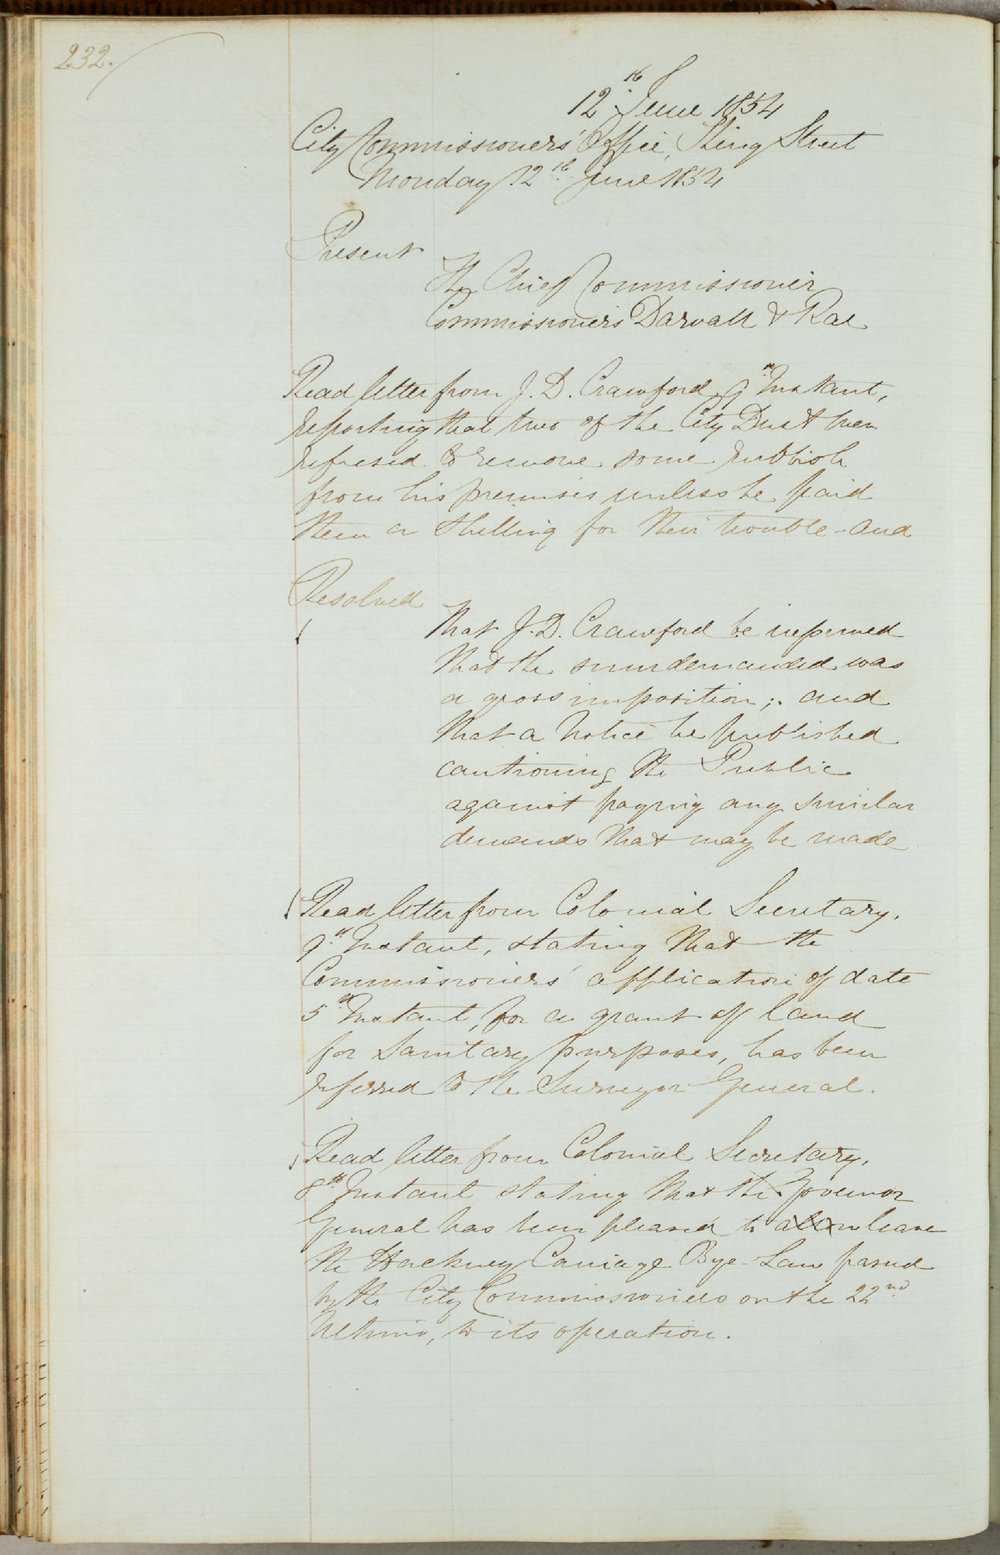 232.
12th June 1854
City Commissioners' Office, King Street
Monday 12th June 1854
Present
The Chief Commissioner
Commissioners Darvall & Rae
Read letter from J. D. Crawford, 9th Instant,
reporting that two of the City Dust men
refused to remove some rubbish
from his premises unless he paid
them a shilling for their trouble - and
Resolved
That J. D. Crawford be informed
that the sum demanded was
a gross imposition; and
that a notice be published
cautioning the Public
against paying any similar
demands that may be made
Read letter from Colonial Secretary,
9th Instant, stating that the
Commissioners' application of date
5th Instant, for a grant of land
for Sanitary purposes, has been
referred to the Surveyor General.
Read letter from Colonial Secretary,
8th Instant stating that the Governor
General has been pleased to leave
the Hackney Carriage Bye-Law passed
by the City Commissioners on the 22nd
Ultimo, to its operation.